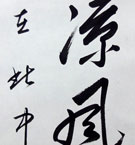 凉风
在此中